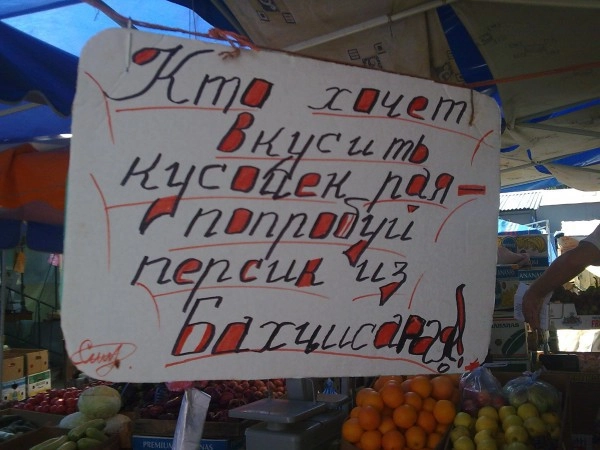 Кто хочет
вкусить
кусочек рая -
попробуй
персик из
Бахчисарая!
PREMIUM BANANAS